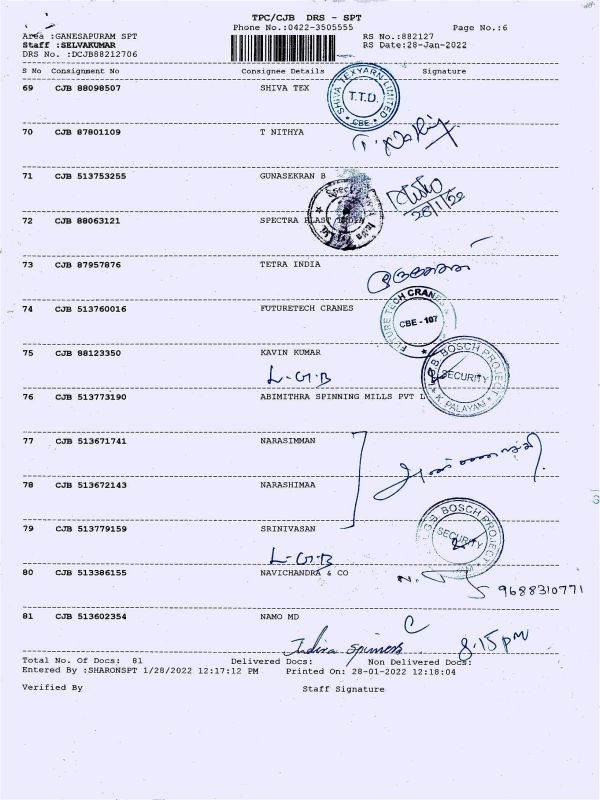 TPC/CJB DRS - SPT
Phone No.:0422-3505555 Page No.:6
Area :GANESAPURAM SPT RS No.:882127
Staff :SELVAKUMAR RS Date:28-Jan-2022
DRS No. :DCJB88212706
S No Consignment No Consignee Details Signature
69 CJB 88098507 SHIVA TEX
SHIVA TEXYARN LIMITED
T.T.D.
CBE
70 CJB 87801109 T NITHYA
71 CJB 513753255 GUNASEKRAN B
28/1/22
72 CJB 88063121 SPECTRA PLAST INDIA
73 CJB 87957876 TETRA INDIA
74 CJB 513760016 FUTURETECH CRANES
FUTURE TECH CRANES
CBE - 107
75 CJB 88123350 KAVIN KUMAR
L-G-B
L.G.B. BOSCH PROJECT
SECURITY
K. PALAYAM
76 CJB 513773190 ABIMITHRA SPINNING MILLS PVT L
77 CJB 513671741 NARASIMMAN
78 CJB 513672143 NARASHIMAA
79 CJB 513779159 SRINIVASAN
L-G-B
G.B. BOSCH PROJECT
SECURITY
80 CJB 513386155 NAVICHANDRA & CO
9688310771
81 CJB 513602354 NAMO MD
Indira
8.15 pm
Total No. Of Docs: 81 Delivered Docs: Non Delivered Docs:
Entered By :SHARONSPT 1/28/2022 12:17:12 PM Printed On: 28-01-2022 12:18:04
Verified By Staff Signature